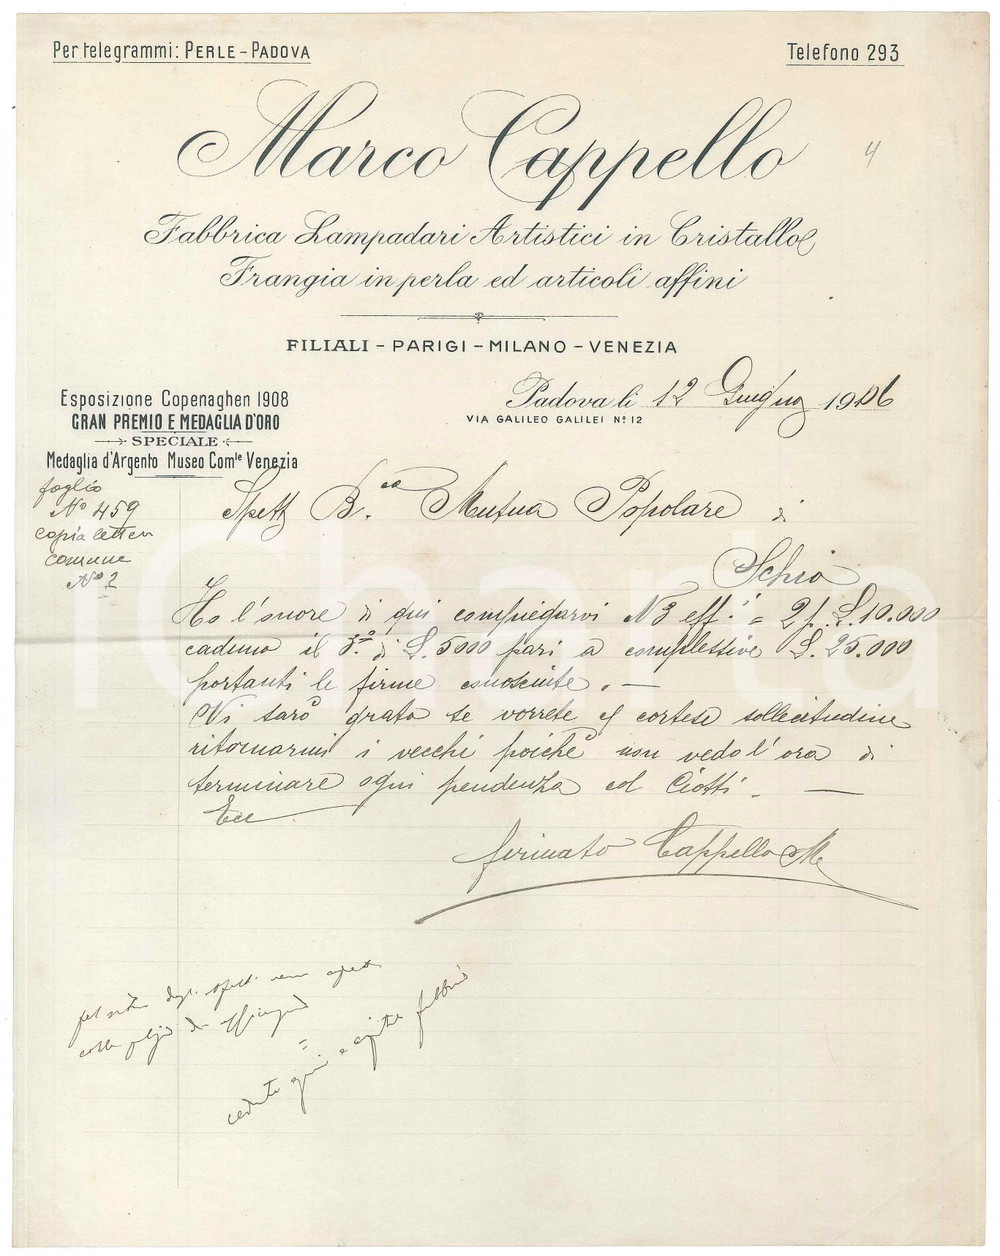 Per telegrammi: PERLE - PADOVA
Telefono 293
Marco Cappello
4
Fabbrica Lampadari Artistici in Cristallo e
Frangia in perla ed articoli affini
FILIALI - PARIGI - MILANO - VENEZIA
Padova li 12 Giugno 1916
VIA GALILEO GALILEI N.º 12
Esposizione Copenaghen 1908
GRAN PREMIO E MEDAGLIA D'ORO
SPECIALE
Medaglia d'Argento Museo Com.le Venezia
foglio
Nº 459
copia lettera
comune
Nº 2
Spett B.ca Mutua Popolare di
Schio
Ho l'onore di qui compiegarvi N 3 eff.i = 2 p. L. 10.000
caduno il 3º di L. 5000 pari a complessive L. 25.000
portanti le firme conosciute. —
Vi sarò grato se vorrete cortese sollecitudine
ritornarmi i vecchi poichè non vedo l'ora di
terminare ogni pendenza col Ciotti. —
Ecc
firmato Cappello M
iCharta